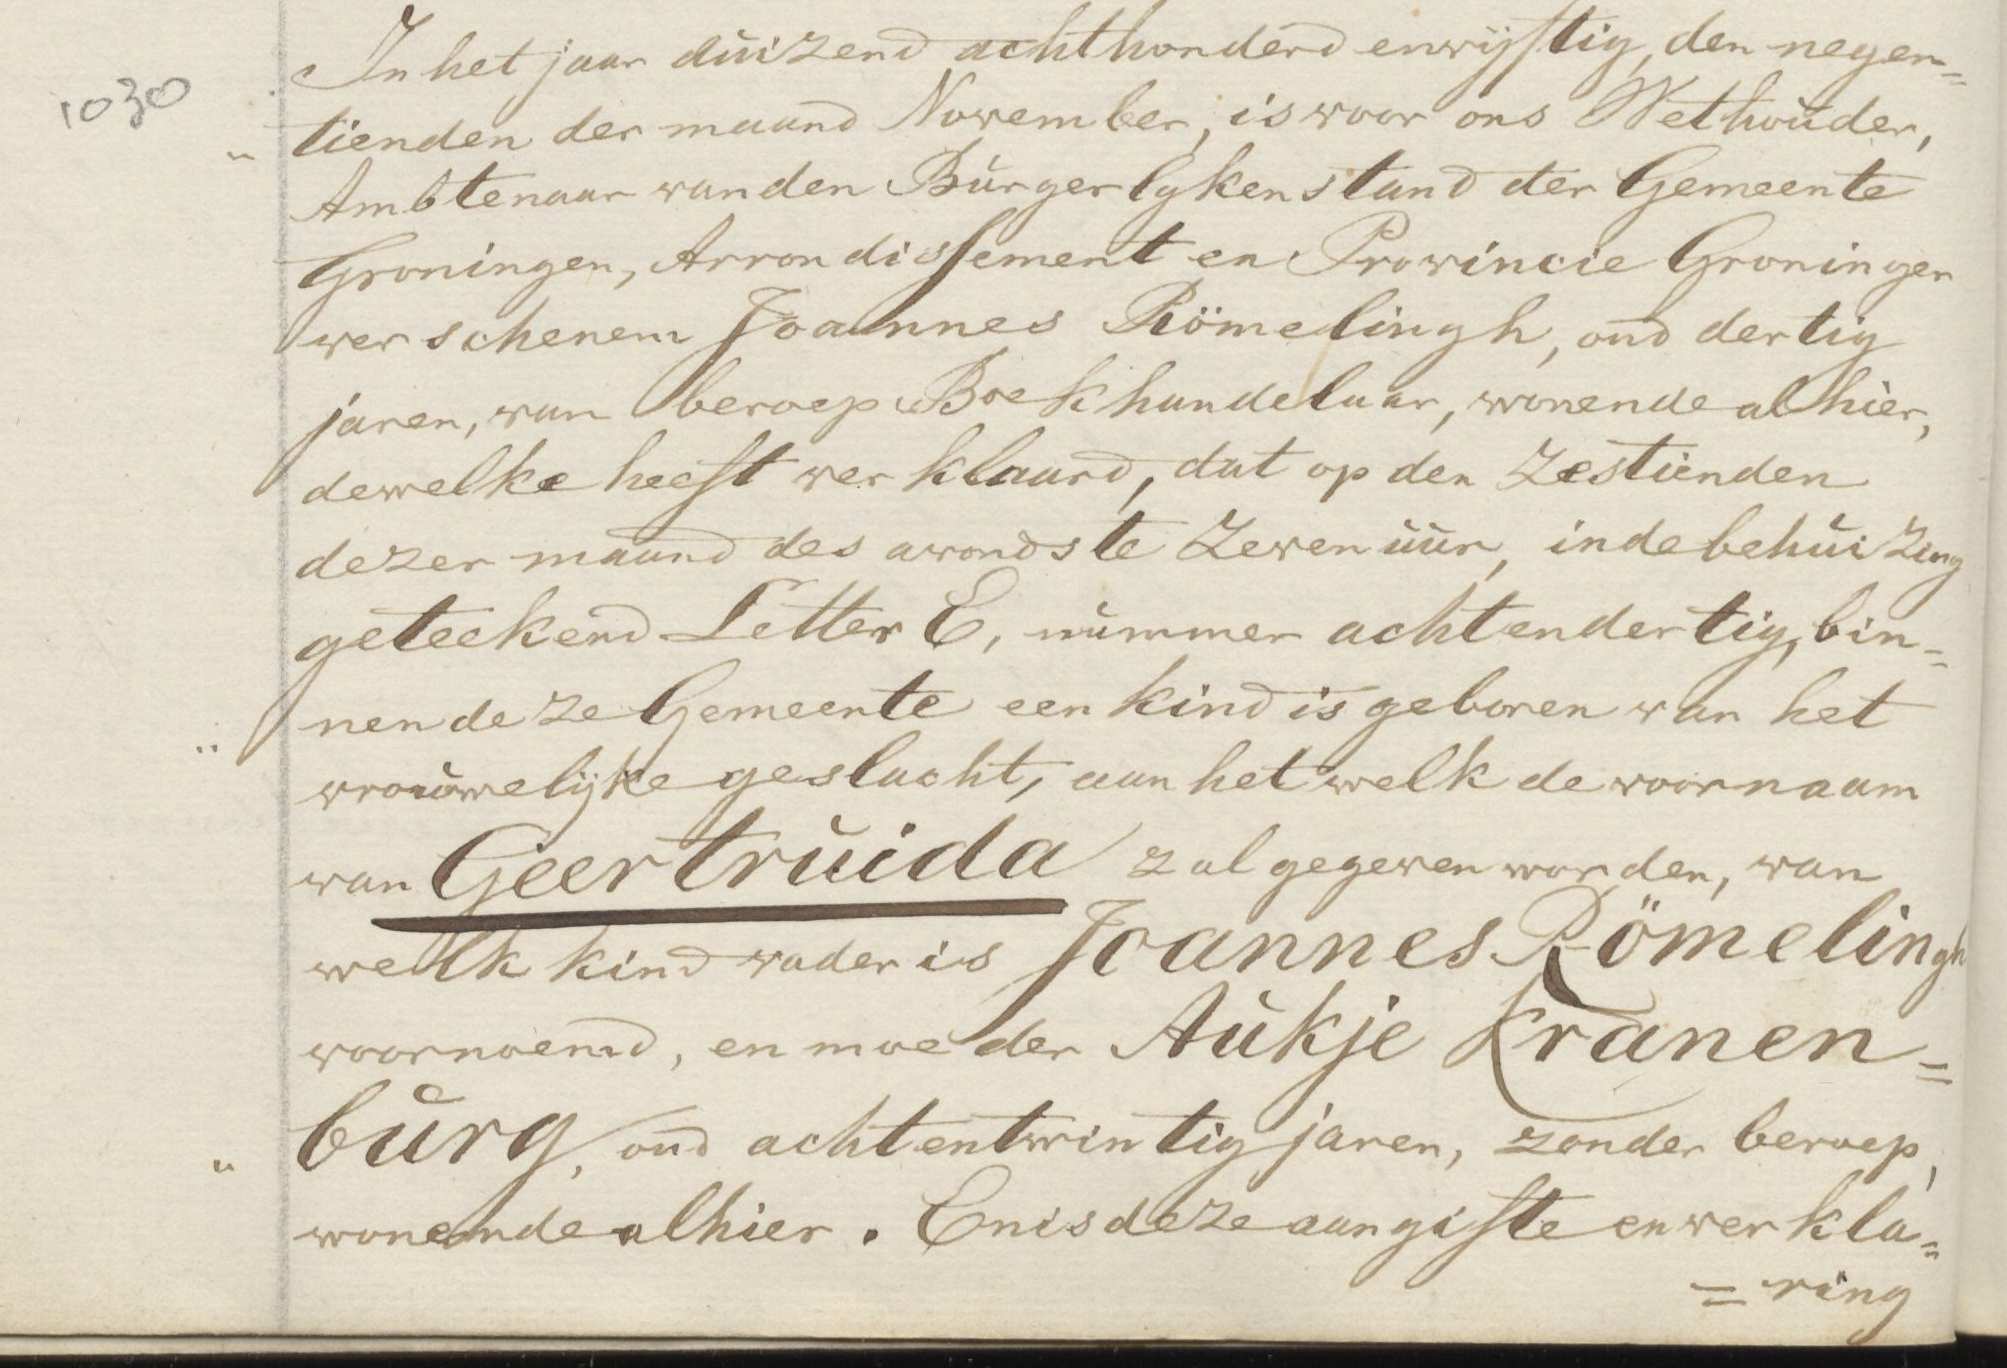 1030
In het jaar duizend achthonderd en vijftig, den negen=
tienden der maand November, is voor ons Wethouder,
Ambtenaar van den Burgerlyken stand der Gemeente
Groningen, Arrondissement en Provincie Groningen
verschenen Joannes Römelingh, oud dertig
jaren, van beroep Boekhandelaar, wonende alhier,
dewelke heeft verklaard, dat op den zestienden
dezer maand des avonds te zeven uur, in de behuizing
geteekend Letter E, nummer achtendertig, bin=
nen deze Gemeente een kind is geboren van het
vrouwelijke geslacht, aan het welk de voornaam
van Geertruida zal gegeven worden, van
welk kind vader is Joannes Römelingh
voornoemd, en moeder Aukje Kranen=
burg, oud achtentwintig jaren, zonder beroep,
wonende alhier. En is deze aangifte en verkla=
=ring